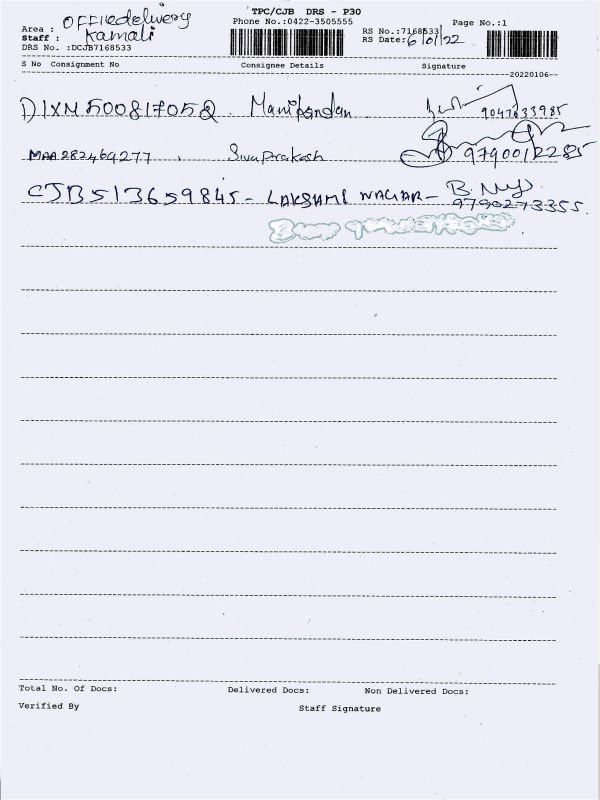 TPC/CJB DRS - P30
Area : Officedelivery
Phone No.:0422-3505555
Page No.:1
Staff : Kamali
RS No.:7168533
RS Date: 6/01/22
DRS No. :DCJB7168533
S No Consignment No Consignee Details Signature
20220106
DIXM500817052 Manikandan 9047633985
MAA282469277 . Sivaprakash 9790012285
CJB513659845 - LAKSHMI NAGAR -
9790273355.
Total No. Of Docs: Delivered Docs: Non Delivered Docs:
Verified By Staff Signature